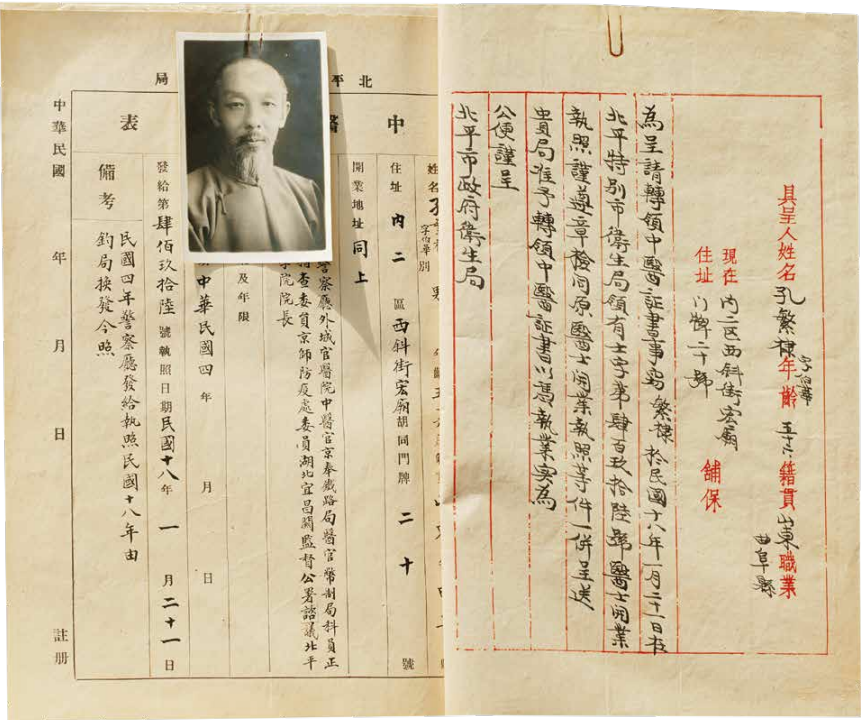 具呈人姓名孔繁棣字伯華年齡五十六籍貫山東曲阜縣職業
現在住址內二区西斜街宏廟門牌二十號
舖保
為呈請轉領中醫証書事竊繁棣於民國十八年一月二十一日在
北平特別市衛生局領有士字第肆百玖拾陸號醫士開業
執照謹遵章檢同原醫士開業執照等件一併呈送
貴局准予轉領中醫証書以憑執業实為
公便謹呈
北平市政府衛生局
北平
局
中
表
姓名孔
字伯華
別
住址內二區西斜街宏廟胡同門牌二十號
開業地址同上
警察廳外城官醫院中醫官京奉鐵路局醫官幣制局科員正
查委員京師防疫處委員湖北宜昌關監督公署諮議北平
學院院長
及年限
中華民國四年 月 日
發給第肆佰玖拾陸號執照日期民國十八年一月二十一日
備考
民國四年警察廳發給執照民國十八年由
鈞局換發今照
中華民國 年 月 日 註册